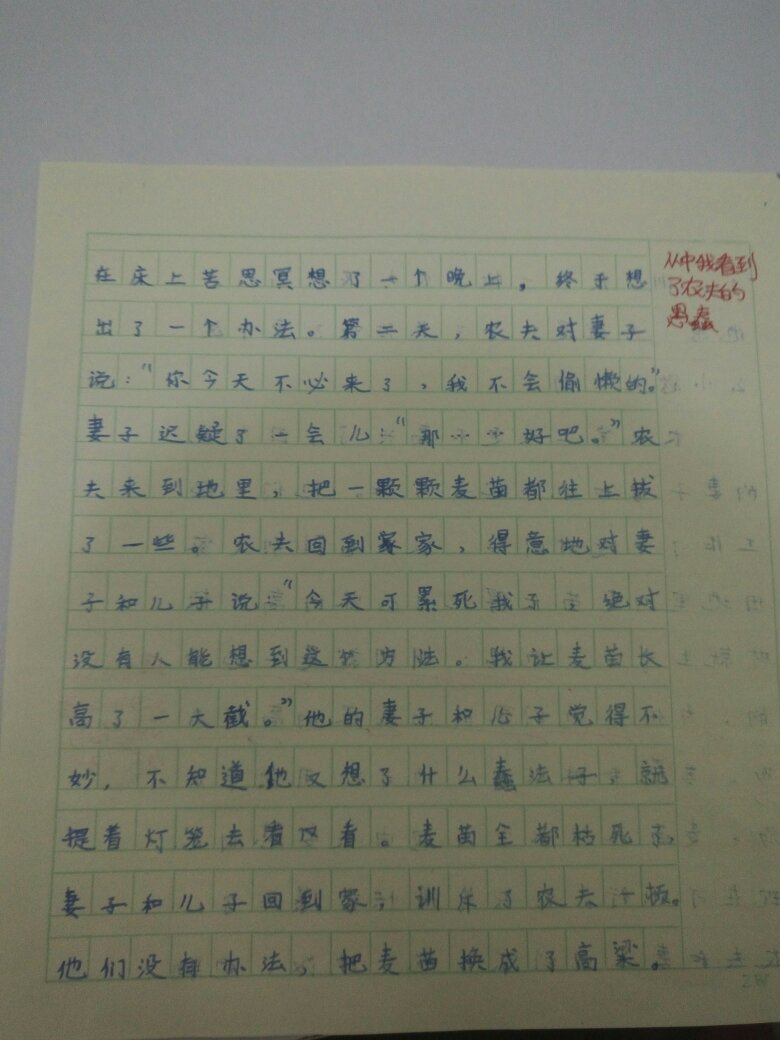 在床上苦思冥想了一个晚上，终于想
出了一个办法。第二天，农夫对妻子
说："你今天不必来了，我不会偷懒的。"
妻子迟疑了一会儿："那……好吧。"农
夫来到地里，把一颗颗麦苗都往上拔
了一些。农夫回到家家，得意地对妻
子和儿子说："今天可累死我了，绝对
没有人能想到这种方法。我让麦苗长
高了一大截。"他的妻子和儿子觉得不
妙，不知道他又想了什么蠢法子，就
提着灯笼去看了看。麦苗全都枯死了，
妻子和儿子回到家，训斥了农夫一顿。
他们没有办法，把麦苗换成了高梁。
从中我看到
了农夫的
愚蠢